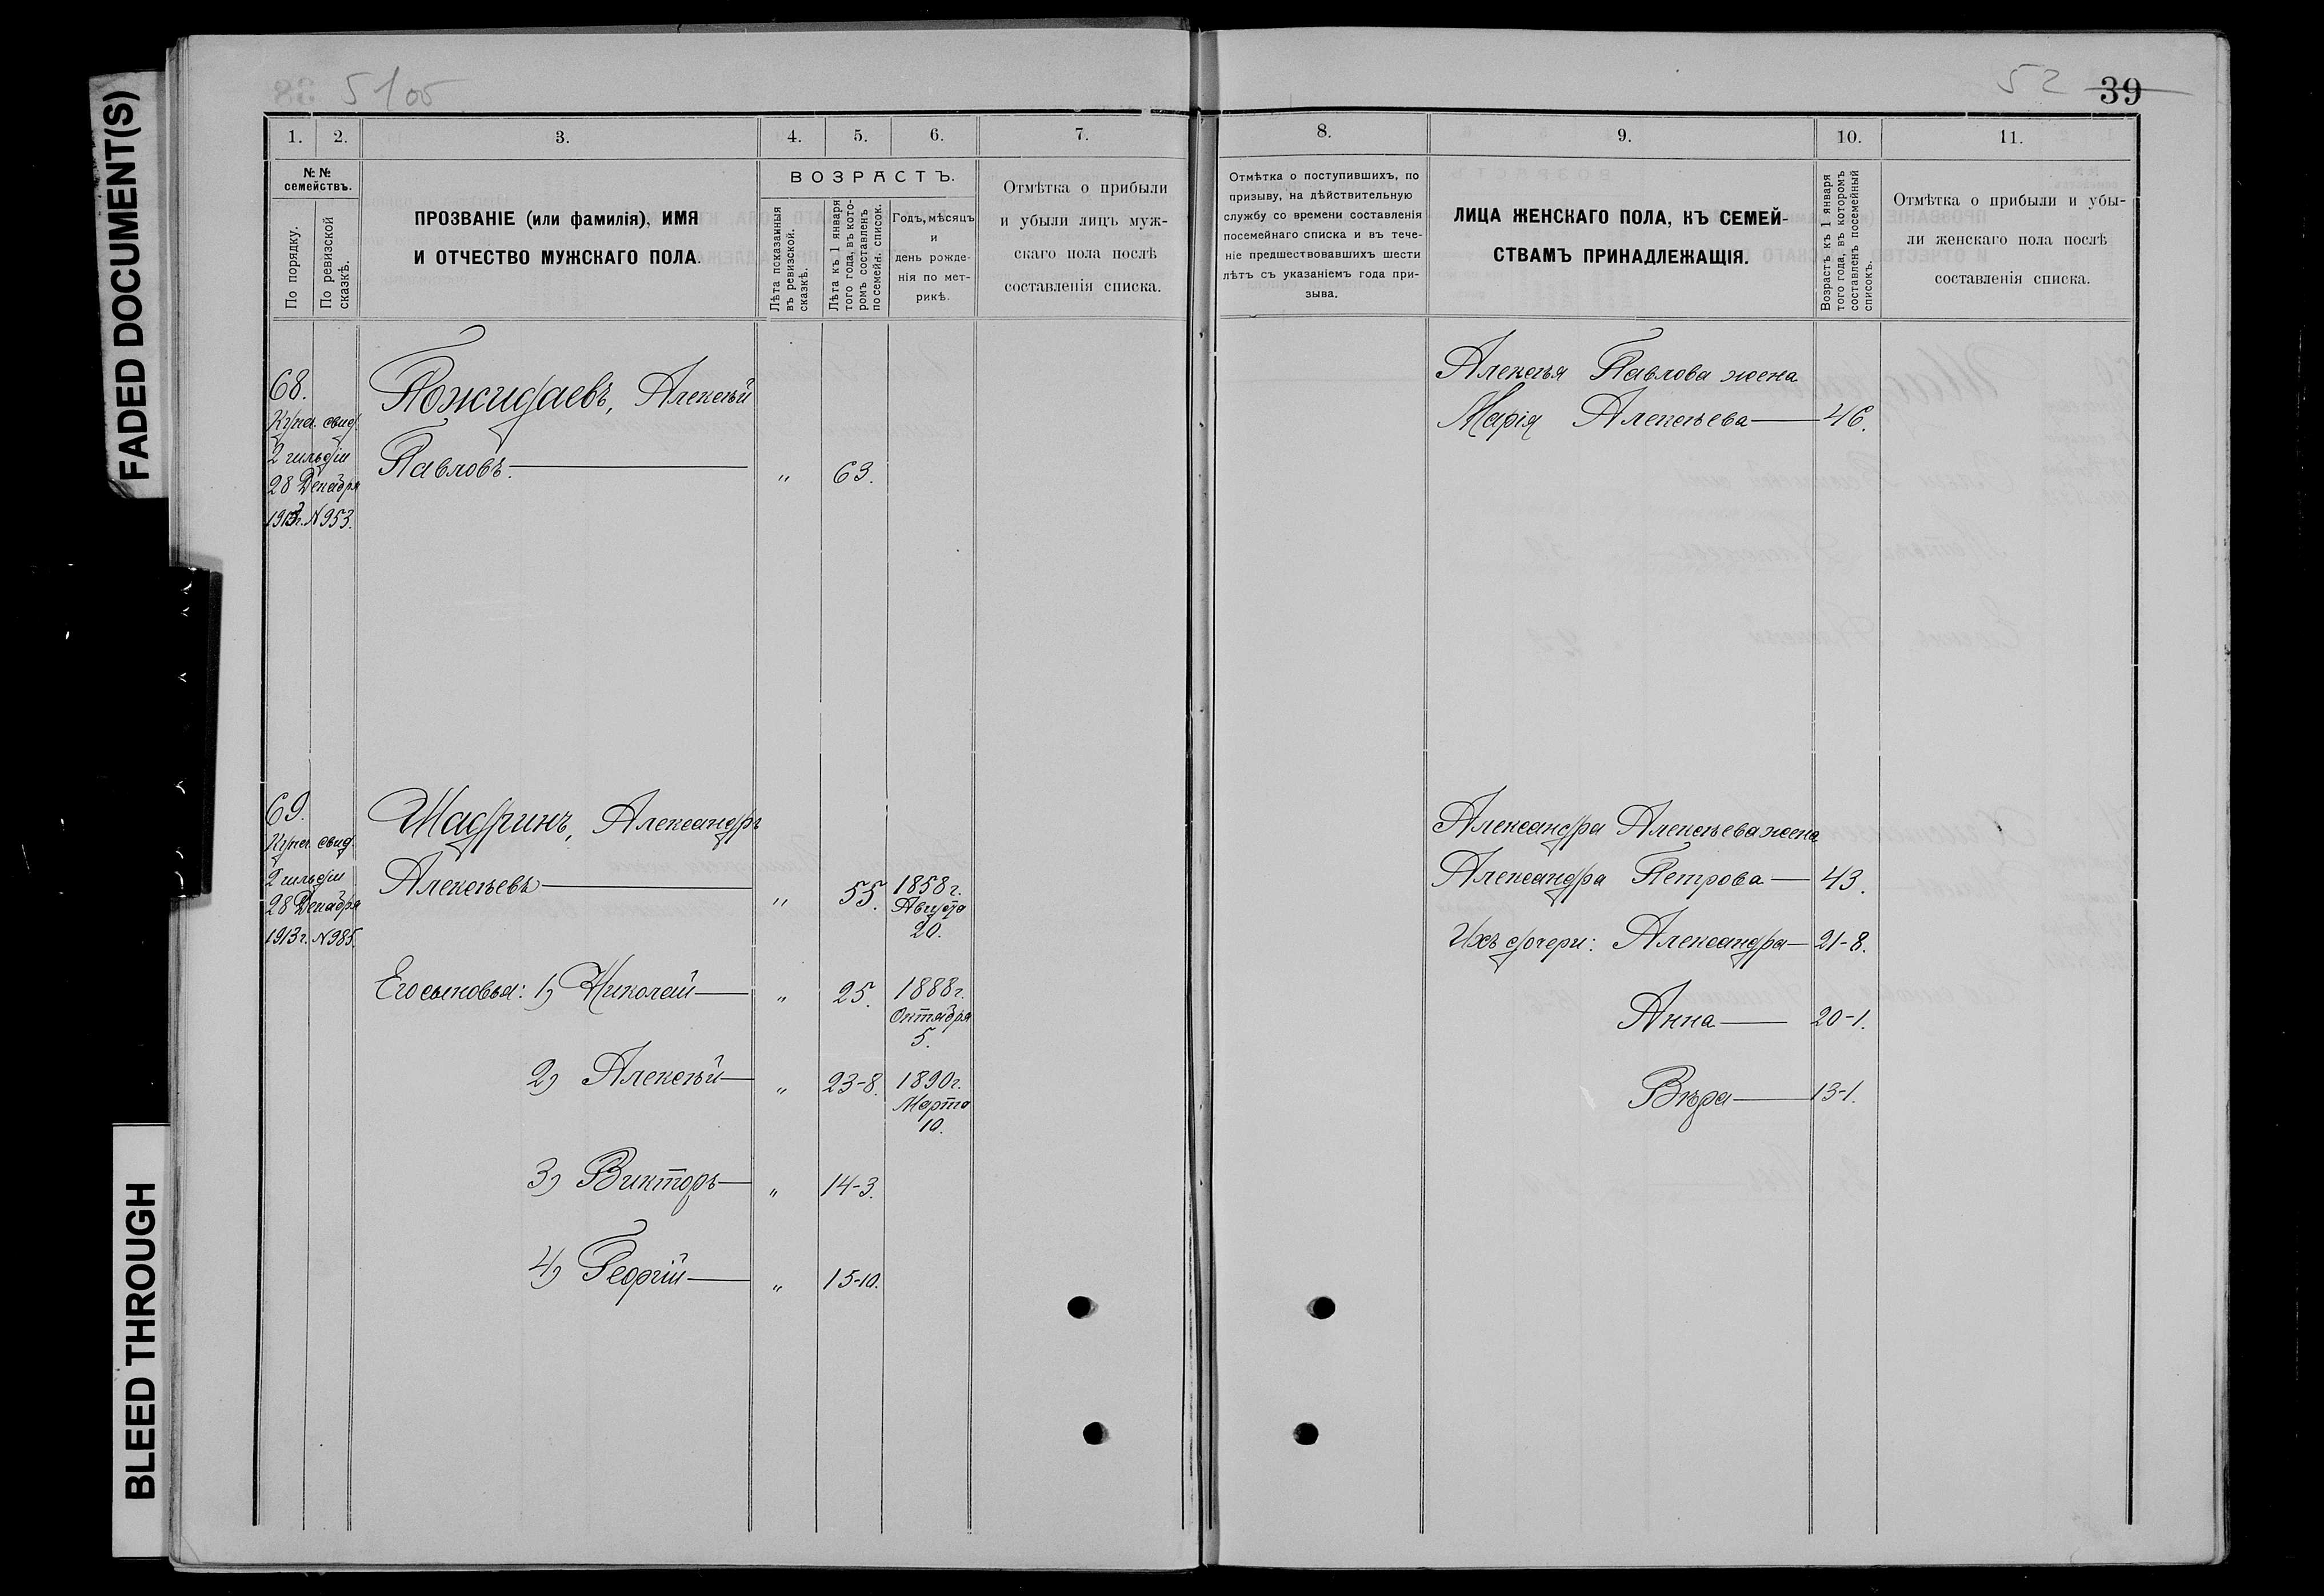 FADED DOCUMENT(S)
BLEED THROUGH
51об
52 39
1. 2. 3. 4. 5. 6. 7.
№ №
семействъ.
По порядку.
По ревизской
сказкѣ.
ПРОЗВАНІЕ (или фамилія), ИМЯ
И ОТЧЕСТВО МУЖСКАГО ПОЛА.
ВОЗРАСТЪ.
Лѣта показанныя
въ ревизской
сказкѣ.
Лѣта къ 1 января
того года, въ кото-
ромъ составленъ
посемейн. список.
Годъ, мѣсяцъ
и
день рожде-
нія по мет-
рикѣ.
Отмѣтка о прибыли
и убыли лицъ муж-
скаго пола послѣ
составленія списка.
68.
Купеч. свид.
2 гильдіи
28 Декабря
1913г. N 953.
Пожидаевъ, Алексѣй
Павловъ. — " 63.
69.
Купеч. свид.
2 гильдіи
28 Декабря
1913 г. N 985.
Шадринъ, Александръ
Алексѣевъ — " 55. 1858 г.
Августа
20.
Его сыновья: 1) Николай — " 25. 1888 г.
Октября
5.
2) Алексѣй — " 23-8. 1890 г.
Марта
10.
3) Викторъ — " 14-3.
4) Георгій — " 15-10.
8. 9. 10. 11.
Отмѣтка о поступившихъ, по
призыву, на дѣйствительную
службу со времени составленія
посемейнаго списка и въ тече-
ніе предшествовавшихъ шести
лѣтъ съ указаніемъ года при-
зыва.
ЛИЦА ЖЕНСКАГО ПОЛА, КЪ СЕМЕЙ-
СТВАМЪ ПРИНАДЛЕЖАЩІЯ.
Возрастъ къ 1 января
того года, въ которомъ
составленъ посемейный
списокъ.
Отмѣтка о прибыли и убы-
ли женскаго пола послѣ
составленія списка.
Алексѣя Павлова жена
Марія Алексѣева — 46.
Александра Алексѣева жена
Александра Петрова — 43.
Ихъ дочери: Александра — 21-8.
Анна — 20-1.
Вѣра — 13-1.